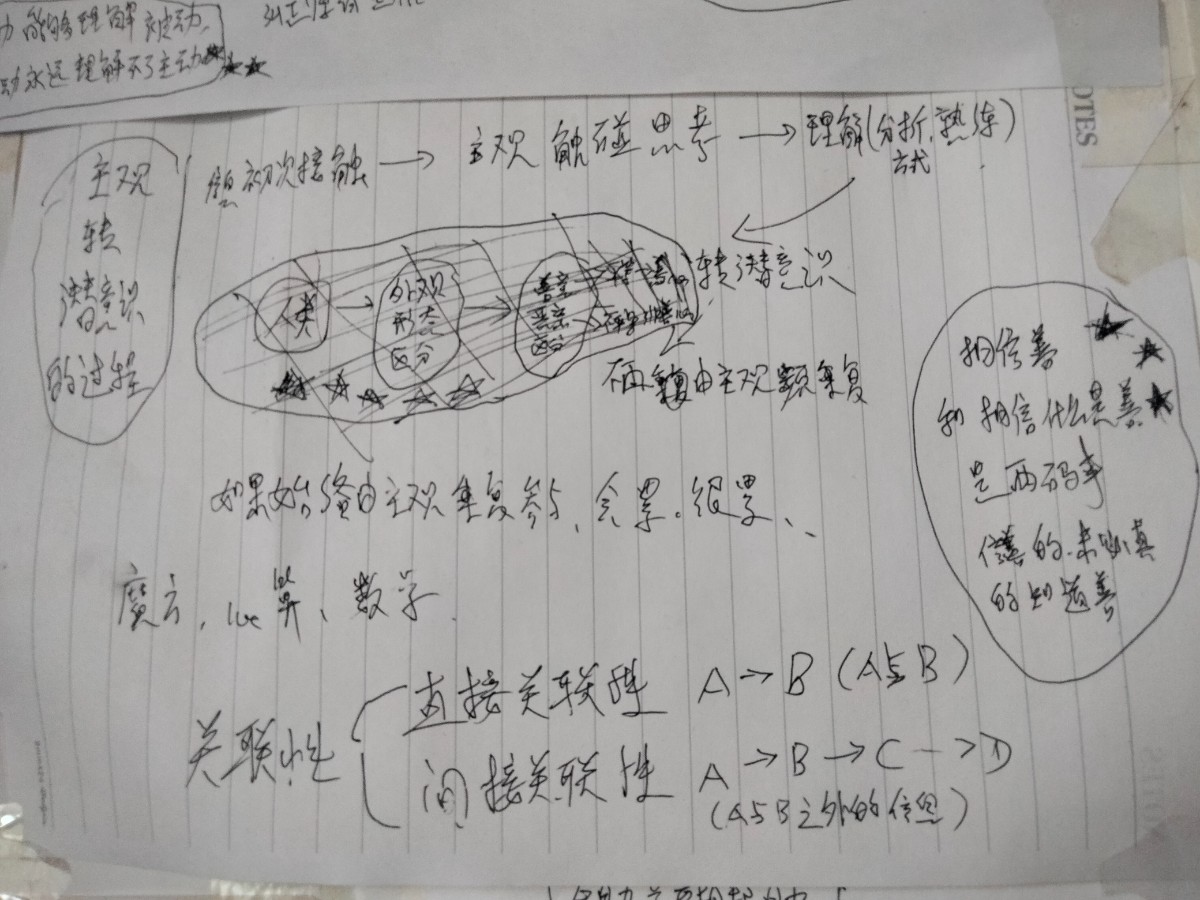 能够理解被动,
动永远理解不了主动
主观
转
潜意识
的过程
初次接触 → 主观触碰思考 → 理解(分析,熟练)
方式
人类 → 外观
形态
区分
善意
恶意
区分
转潜意识
不再由主观重复
如果始终由主观重复参与、会累。很累、
广告, 数学
关联性
直接关联性 A → B (A与B)
间接关联性 A → B → C → D
(A与B之外的信息)
相信善
和相信什么是善
是两码事
信善的.未必真
的知道善
OTES